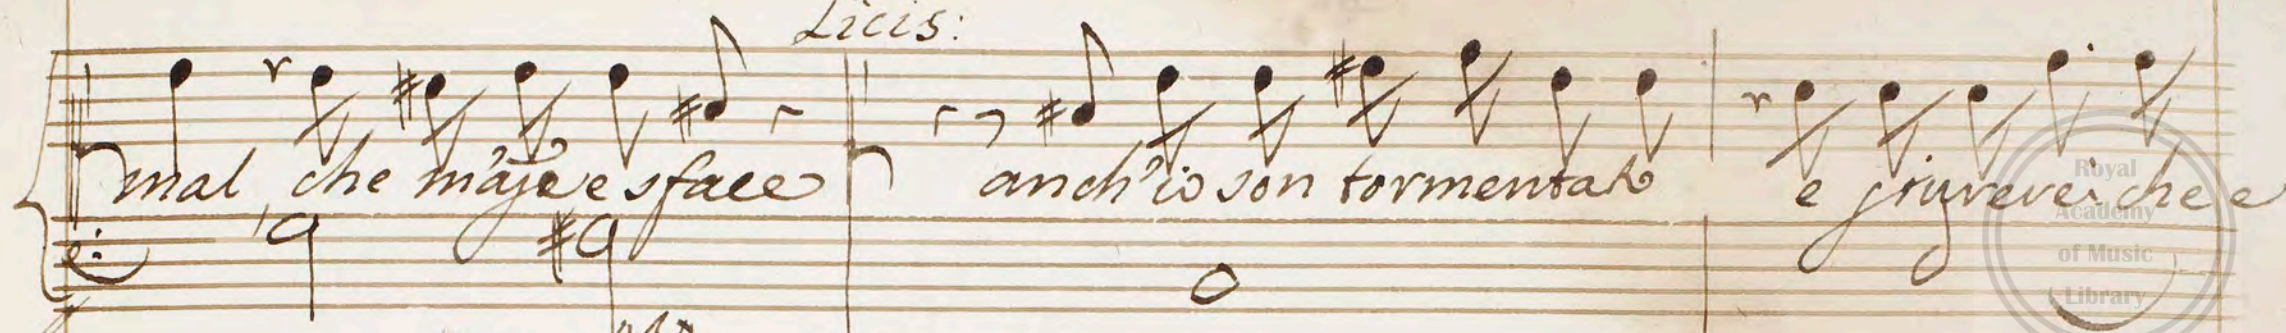 Licis:
mal che m'aje e sface anch'io son tormentato e giurerei che e
Royal
Academy
of Music
Library